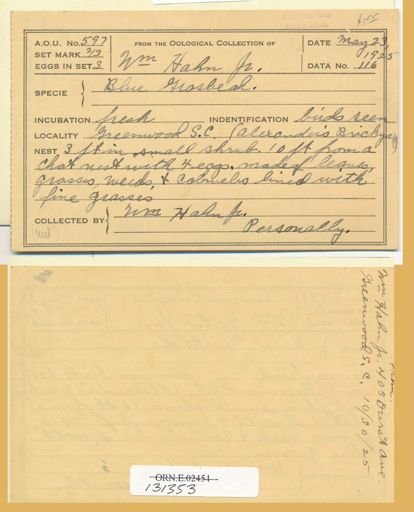 A.O.U. No. 597
SET MARK 2/3
EGGS IN SET 3
FROM THE OOLOGICAL COLLECTION OF
Wm Hahn Jr.
DATE May 23, 1925
DATA No. 116
SPECIE Blue Grosbeak.
INCUBATION fresh INDENTIFICATION birds seen
LOCALITY Greenwood S.C. (Alexander's Brickyard)
NEST 3 ft in small shrub. 10 ft from a
Chat nest with 4 eggs. made of leaves,
grasses, weeds, & cobwebs lined with
fine grasses
COLLECTED BY Wm Hahn Jr.
Personally.
from
Wm Hahn Jr. 403 Durst Ave.
Greenwood S. C. 10/30/25
ORN.E.02454
131353